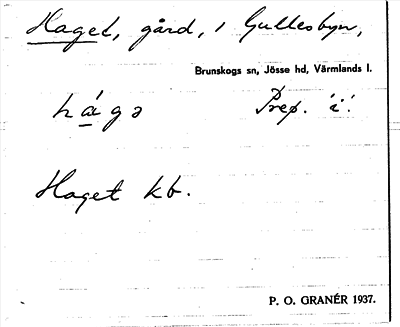 Haget, gård, i Gullesbyn,
Brunskogs sn, Jösse hd, Värmlands l.
hágə Prep. "i".
Haget kb.
P. O. GRANÉR 1937.